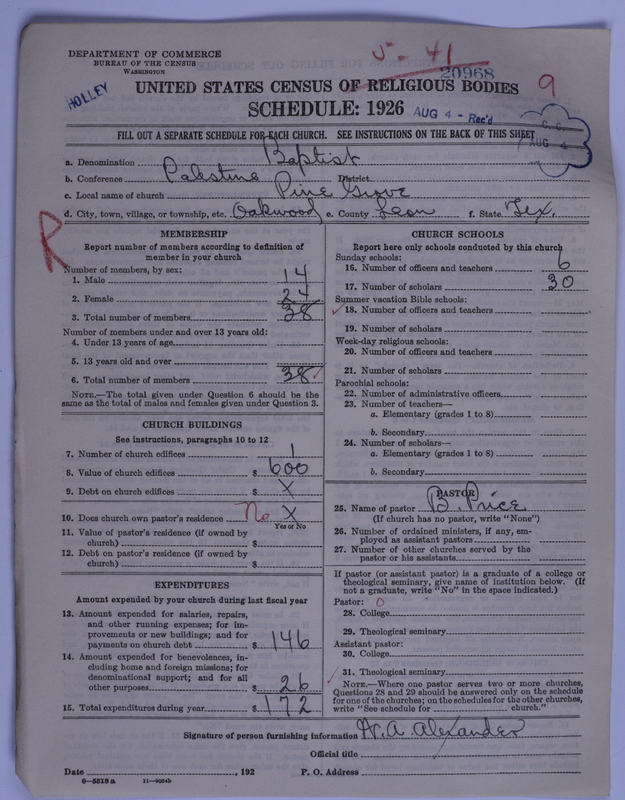 DEPARTMENT OF COMMERCE
BUREAU OF THE CENSUS
WASHINGTON
5-41
20968
HOLLEY
UNITED STATES CENSUS OF RELIGIOUS BODIES
9
SCHEDULE: 1926
AUG 4 - Rec'd
C. G.
AUG 4
FILL OUT A SEPARATE SCHEDULE FOR EACH CHURCH. SEE INSTRUCTIONS ON THE BACK OF THIS SHEET
a. Denomination Baptist
b. Conference Palestine District
c. Local name of church Pine Grove
d. City, town, village, or township, etc. Oakwood e. County Leon f. State Tex.
R
MEMBERSHIP
Report number of members according to definition of
member in your church
Number of members, by sex:
1. Male 14
2. Female 24
3. Total number of members 38
Number of members under and over 13 years old:
4. Under 13 years of age
5. 13 years old and over
6. Total number of members 38
NOTE.—The total given under Question 6 should be the
same as the total of males and females given under Question 3.
CHURCH BUILDINGS
See instructions, paragraphs 10 to 12
7. Number of church edifices 1
8. Value of church edifices $ 600
9. Debt on church edifices $ X
10. Does church own pastor's residence No X
Yes or No
11. Value of pastor's residence (if owned by
church) $
12. Debt on pastor's residence (if owned by
church) $
EXPENDITURES
Amount expended by your church during last fiscal year
13. Amount expended for salaries, repairs,
and other running expenses; for im-
provements or new buildings; and for
payments on church debt $ 146
14. Amount expended for benevolences, in-
cluding home and foreign missions; for
denominational support; and for all
other purposes $ 26
15. Total expenditures during year $ 172
CHURCH SCHOOLS
Report here only schools conducted by this church
Sunday schools:
16. Number of officers and teachers 6
17. Number of scholars 30
Summer vacation Bible schools:
18. Number of officers and teachers
19. Number of scholars
Week-day religious schools:
20. Number of officers and teachers
21. Number of scholars
Parochial schools:
22. Number of administrative officers
23. Number of teachers—
a. Elementary (grades 1 to 8)
b. Secondary
24. Number of scholars—
a. Elementary (grades 1 to 8)
b. Secondary
PASTOR
25. Name of pastor B. Price
(If church has no pastor, write "None")
26. Number of ordained ministers, if any, em-
ployed as assistant pastors
27. Number of other churches served by the
pastor or his assistants
If pastor (or assistant pastor) is a graduate of a college or
theological seminary, give name of institution below. (If
not a graduate, write "No" in the space indicated.)
Pastor: 0
28. College
29. Theological seminary
Assistant pastor:
30. College
31. Theological seminary
NOTE.—Where one pastor serves two or more churches,
Questions 28 and 29 should be answered only on the schedule
for one of the churches; on the schedules for the other churches,
write "See schedule for church."
Signature of person furnishing information W. A. Alexander
Official title
Date , 192 P. O. Address
6—5518a 11—9024b